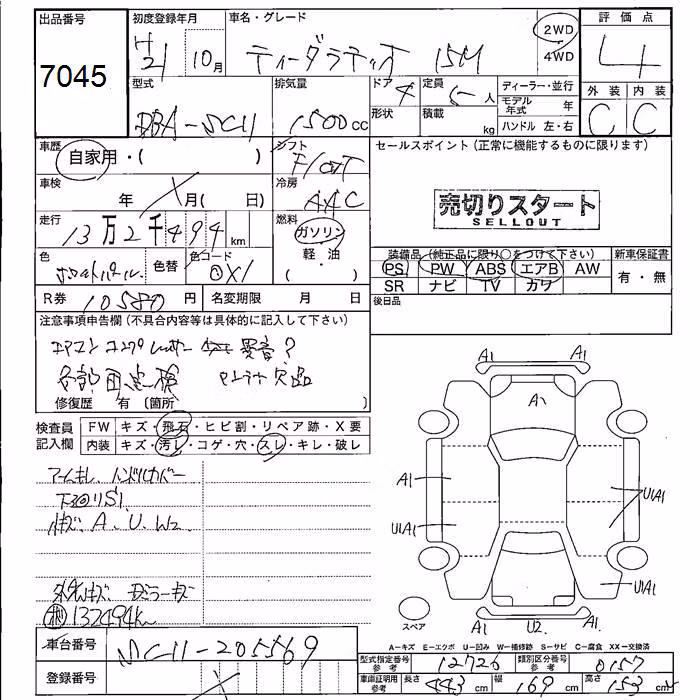 出品番号 初度登録年月 車名・グレード 評価点
7045 H21 10月 ティーダラティオ 15M 2WD 4WD 4
外装 内装
C C
型式 排気量 ドア 4 定員 5人 ディーラー・並行
DBA-SC11 1500cc 形状 積載 kg モデル年式 年
ハンドル 左・右
車歴 自家用・( ) シフト FLOOR セールスポイント (正常に機能するものに限ります)
車検 年 X 月( 日) 冷房 AAC
売切りスタート
SELLOUT
走行 13万2千494km 燃料 ガソリン
軽・油
色 色替 色コード QX1 装備品 (純正品に限り○をつけて下さい) 新車保証書
PS PW ABS エアB AW 有・無
SR ナビ TV カワ
R券 10580円 名変期限 月 日 後日品
注意事項申告欄 (不具合内容等は具体的に記入して下さい)
エアコンコンプレッサー 異音?
各部要点検 欠品
修復歴 有 (箇所 )
検査員記入欄 FW キズ・飛石・ヒビ割・リペア跡・X要
内装 キズ・汚レ・コゲ・穴・スレ・キレ・破レ
ハンドルカバー
下回りS1
キズ A、U、W2
132494k
A1 A1
A
A1 U1A1
U1A1
U1A1
スペア A1 U2 A1
A-キズ E-エクボ U-凹み W-補修跡 S-サビ C-腐食 XX-交換済
車台番号 SC11-205569
登録番号 X
型式指定番号 参考 12726 類別区分番号 参考 0157
車庫証明用 参考 長さ 443cm 幅 169cm 高さ 153cm